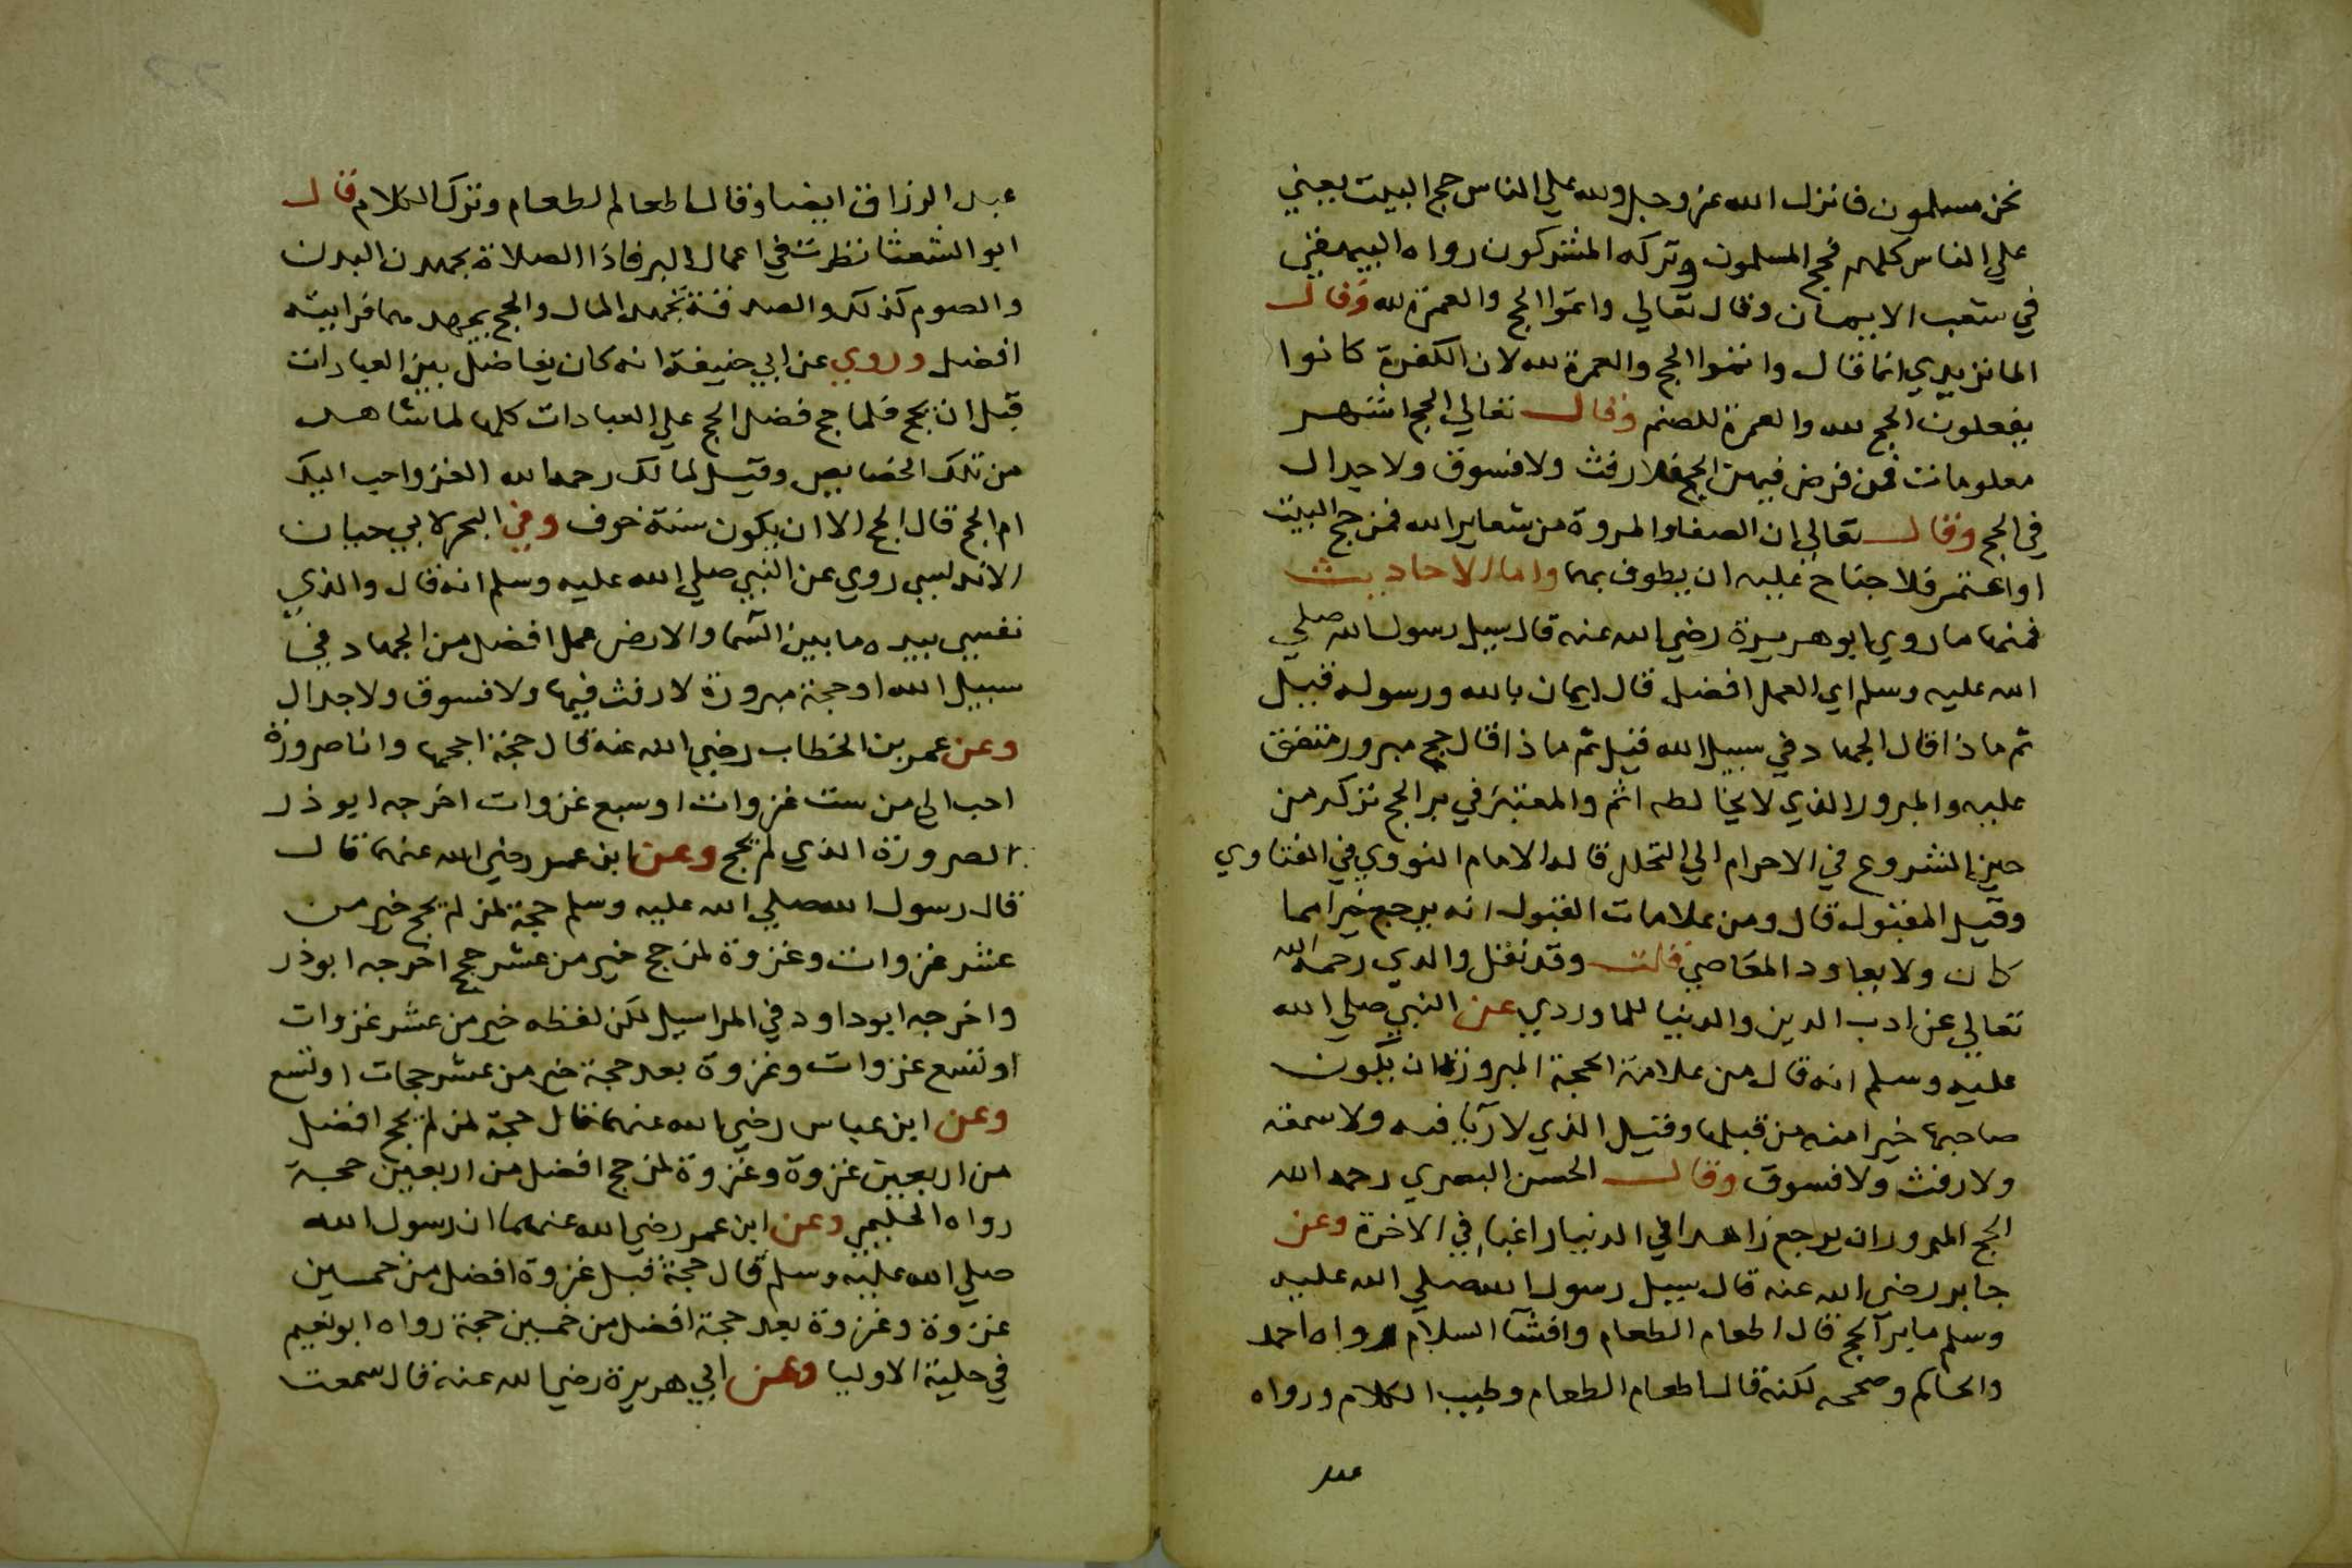 نحن مسلمون فانزل الله عز وجل ولله علي الناس حج البيت يعني
علي الناس كلهم فحج المسلمون وتركه المشركون رواه البيهقي
في شعب الايمان وقال تعالي واتموا الحج والعمرة لله وقال
الماتريدي انما قال واتموا الحج والعمرة لله لان الكفرة كانوا
يفعلون الحج لله والعمرة للصنم وقال تعالي الحج اشهر
معلومات فمن فرض فيهن الحج فلا رفث ولا فسوق ولا جدال
في الحج وقال تعالي ان الصفا والمروة من شعاير الله فمن حج البيت
او اعتمر فلا جناح عليه ان يطوف بهما واما الاحاديث
فمنها ما روي ابو هريرة رضي الله عنه قال سيل رسول الله صلي
الله عليه وسلم اي العمل افضل قال ايمان بالله ورسوله قيل
ثم ماذا قال الجهاد في سبيل الله قيل ثم ماذا قال حج مبرور متفق
عليه والمبرور الذي لا يخالطه اثم والمعتبر في بر الحج تركه من
حين الشروع في الاحرام الي التحلل قاله الامام النووي في الفتاوي
وقيل المقبول قال ومن علامات القبول انه يرجع خيرا مما
كان ولا يعاود المعاصي قلت وقد نقل والدي رحمه الله
تعالي عن ادب الدين والدنيا للماوردي عن النبي صلي الله
عليه وسلم انه قال من علامة الحجة المبرورة ان يكون
صاحبها خيرا منه من قبلها وقيل الذي لا ريا فيه ولا سمعة
ولا رفث ولا فسوق وقال الحسن البصري رحمه الله
الحج المبرور ان يرجع زاهدا في الدنيا راغبا في الاخرة وعن
جابر رضي الله عنه قال سيل رسول الله صلي الله عليه
وسلم ما بر الحج قال اطعام الطعام وافشا السلام رواه احمد
والحاكم وصححه لكنه قال اطعام الطعام وطيب الكلام ورواه
عبد
عبد الرزاق ايضا وقال اطعام الطعام وترك الكلام قال
ابو الشعثا نظرت في اعمال البر فاذا الصلاة تجهد ن البدن
والصوم كذلك والصدقة تجهد المال والحج يجهدهما فرايته
افضل وروي عن ابي حنيفة انه كان يفاضل بين العبادات
قبل ان يحج فلما حج فضل الحج علي العبادات كلها لما شاهد
من تلك الخصايص وقيل لمالك رحمه الله الغزو احب اليك
ام الحج قال الحج الا ان يكون سنة خوف وفي البحر لابي حيان
الاندلسي روي عن النبي صلي الله عليه وسلم انه قال والذي
نفسي بيده ما بين السما والارض عمل افضل من الجهاد في
سبيل الله او حجة مبرورة لا رفث فيها ولا فسوق ولا جدال
وعن عمر بن الخطاب رضي الله عنه قال حجة احجها وانا صرورة
احب الي من ست غزوات او سبع غزوات اخرجه ابو ذر
الصرورة الذي لم يحج وعن ابن عمر رضي الله عنهما قال
قال رسول الله صلي الله عليه وسلم حجة لمن لم يحج خير من
عشر غزوات وغزوة لمن حج خير من عشر حجج اخرجه ابو ذر
واخرجه ابو داود في المراسيل لكن لفظه خير من عشر غزوات
او تسع غزوات وغزوة بعد حجة خير من عشر حجات او تسع
وعن ابن عباس رضي الله عنهما قال حجة لمن لم يحج افضل
من اربعين غزوة وغزوة لمن حج افضل من اربعين حجة
رواه الحليمي وعن ابن عمر رضي الله عنهما ان رسول الله
صلي الله عليه وسلم قال حجة قبل غزوة افضل من خمسين
غزوة وغزوة بعد حجة افضل من خمسين حجة رواه ابو نعيم
في حلية الاوليا وعن ابي هريرة رضي الله عنه قال سمعت